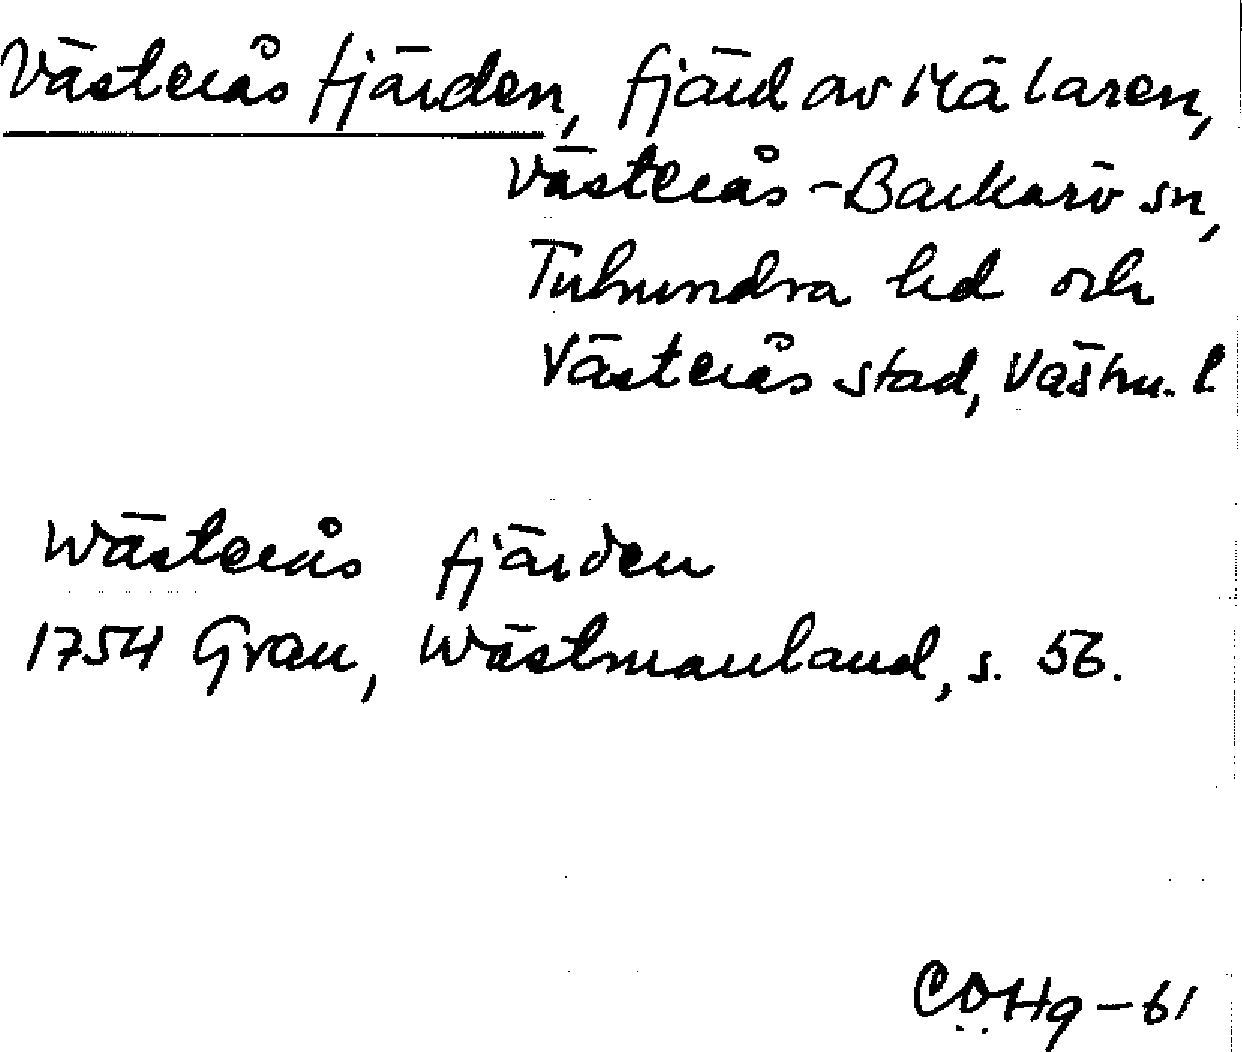 Västerås fjärden, fjärd av Mälaren,
Västerås-Barkarö sn,
Tuhundra hd och
Västerås stad, Västm. l.
Wästerås fjärden
1754 Grau, Wästmanland, s. 56.
CÖHg-61